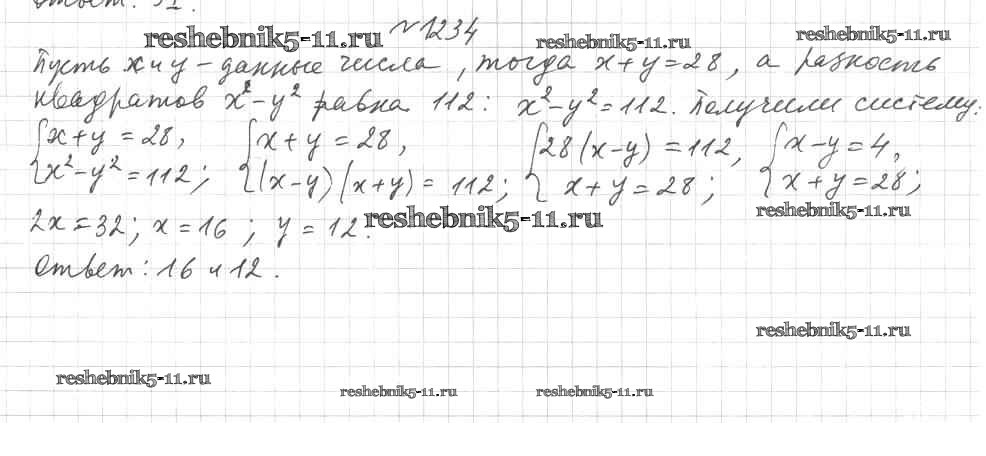 Ответ: 31.
№1234
reshebnik5-11.ru reshebnik5-11.ru reshebnik5-11.ru
Пусть x и y – данные числа, тогда x+y=28, а разность
квадратов x²-y² равна 112: x²-y²=112. Получили систему:
{x+y=28, {x+y=28, {28(x-y)=112, {x-y=4,
x²-y²=112; (x-y)(x+y)=112; x+y=28; x+y=28;
reshebnik5-11.ru reshebnik5-11.ru
2x=32; x=16; y=12.
Ответ: 16 и 12.
reshebnik5-11.ru
reshebnik5-11.ru
reshebnik5-11.ru reshebnik5-11.ru